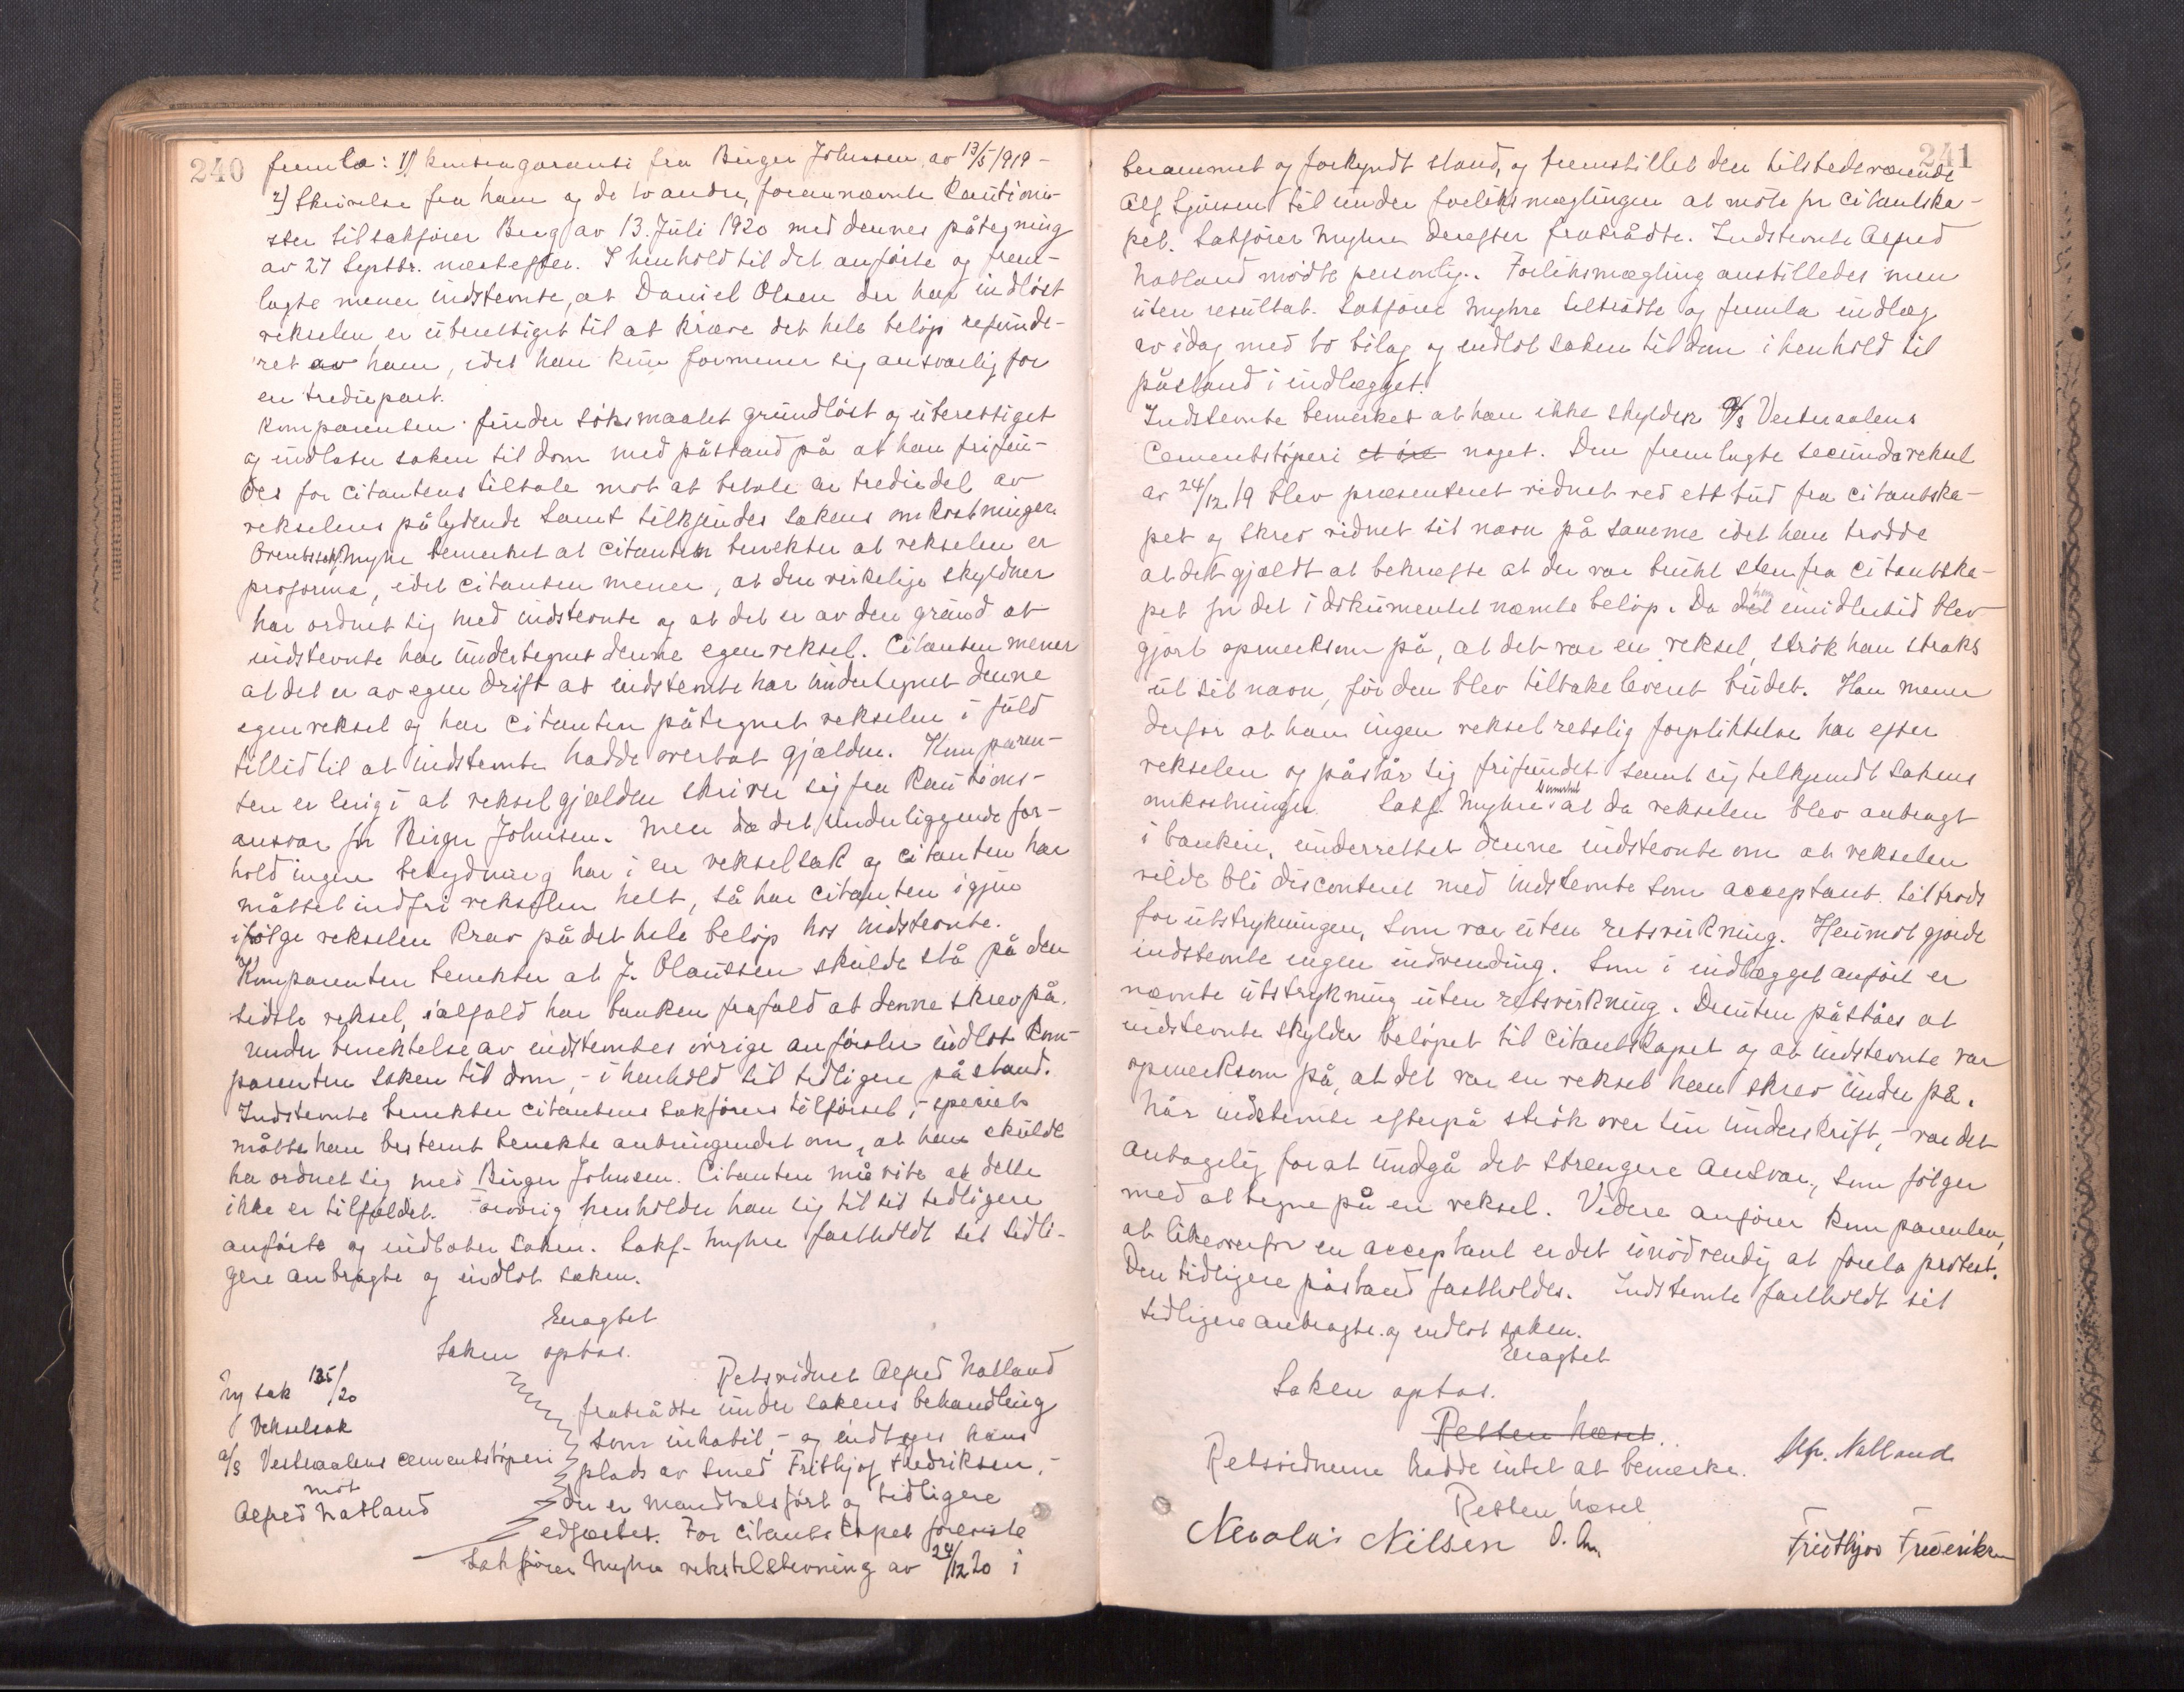 240
fremla: 1) kontragaranti fra Birger Johnsen av 13/5 1919 -
2) Skrivelse fra ham og de to andre, forannævnte Kautioni-
ster til sakfører Berg av 13. Juli 1920 med dennes påtegning
av 27 Septbr. næstefter. I henhold til det anførte og frem-
lagte mener indstevnte, at Daniel Olsen der har indløst
vekselen er uberettiget til at kræve det hele beløp refunde-
ret av ham, idet han kun formener sig ansvarlig for
en trediepart.
Komparenten finder søksmaalet grundløst og uberettiget
og indlater saken til dom med påstand på at han frifin-
des for citantens tiltale mot at betale en trediedel av
vekselens pålydende samt tilkjendes sakens omkostninger.
Overretssakf. Myhre bemerket at citanten benekter at vekselen er
proforma, idet citanten mener, at den virkelige skyldner
har ordnet sig med indstevnte og at det er av den grund at
indstevnte har undertegnet denne egenveksel. Citanten mener
at det er av egen drift at indstevnte har undertegnet denne
egenveksel og har citanten påtegnet vekselen i fuld
tillid til at indstevnte hadde overtat gjælden. Komparen-
ten er enig i at vekselgjælden skriver sig fra Kautions-
ansvar for Birger Johnsen. Men da det underliggende for-
hold ingen betydning har i en vekselsak og citanten har
måttet indfri vekselen helt, så har citanten igjen
ifølge vekselen krav på det hele beløp hos indstevnte.
Komparenten benekter at J. Olaussen skulde stå på den
sidste veksel, ialfald har banken frafald at denne skrev på.
Under benektelse av indstevntes øvrige anførsler indlot Kom-
parenten saken til dom, - i henhold til tidligere påstand.
Indstevnte benekter citantens sakførers tilførsel, - specielt
måtte han bestemt benekte anbringendet om, at han skulde
ha ordnet sig med Birger Johnsen. Citanten må vite at dette
ikke er tilfældet. Forøvrig henholder han sig til sit tidligere
anførte og indlater saken. Sakf. Myhre fastholdt sit tidli-
gere anbragte og indlot saken.
Eragtet
Saken optas.
Ny sak 125/20
Vekselsak
a/s Vesteraalens cementstøperi
mot
Alfred Natland
Retsvidnet Alfred Natland
fratrådte under sakens behandling
som inhabil, - og indtoges hans
plads av smed Frithjof Fredriksen, -
der er mandtalsført og tidligere
edfæstet. For citantskapet foreviste
Sakfører Myhre vekselstevning av 24/12 20 i
241
berammet og forkyndt stand, og fremstillet den tilstedeværende
Alf Sjursen til under forliksmæglingen at møte for citantska-
pet. Sakfører Myhre derefter fratrådte. Indstevnte Alfred
Natland mødte personlig. Forliksmægling anstilledes men
uten resultat. Sakfører Myhre tiltrådte og fremla indlæg
av idag med to bilag og indlot saken til dom i henhold til
påstand i indlægget.
Indstevnte bemerket at han ikke skylder A/s Vesteraalens
Cementstøperi et øre noget. Den fremlagte secundaveksel
av 24/12 19 blev præsenteret vidnet ved ett bud fra citantska-
pet og skrev vidnet sit navn på samme idet han trodde
at det gjaldt at bekræfte at der var brukt sten fra citantska-
pet for det i dokumentet nævnte beløp. Da det han imidlertid blev
gjort opmerksom på, at det var en veksel, strøk han straks
ut sit navn, før den blev tilbakeleveret budet. Han mener
derfor at han ingen vekselretslig forpliktelse har efter
vekselen og påstår sig frifundet samt sig tilkjendt sakens
omkostninger. Sakf. Myhre bemerket at da vekselen blev anbragt
i banken, underrettet denne indstevnte om at vekselen
vilde bli discontert med indstevnte som acceptant til trods
for utstrykningen, som var uten retsvirkning. Herimot gjorde
indstevnte ingen indvending. Som i indlægget anført er
nævnte utstrykning uten retsvirkning. Desuten påståes at
indstevnte skylder beløpet til citantskapet og at indstevnte var
opmerksom på, at det var en veksel han skrev under på.
Når indstevnte efterpå strøk over sin underskrift, - var det
antagelig for at undgå det strengere ansvar, som følger
med at tegne på en veksel. Videre anfører komparenten,
at likeoverfor en acceptant er det unødvendig at foreta protest.
Den tidligere påstand fastholdes. Indstevnte fastholdt sit
tidligere anbragte og indlot saken.
Eragtet
Saken optas.
Retten hævet.
Retsvidnerne hadde intet at bemerke.
Alf. Natland
Retten hævet
Nicolai Nilsen
Fridthjov Frederiksen